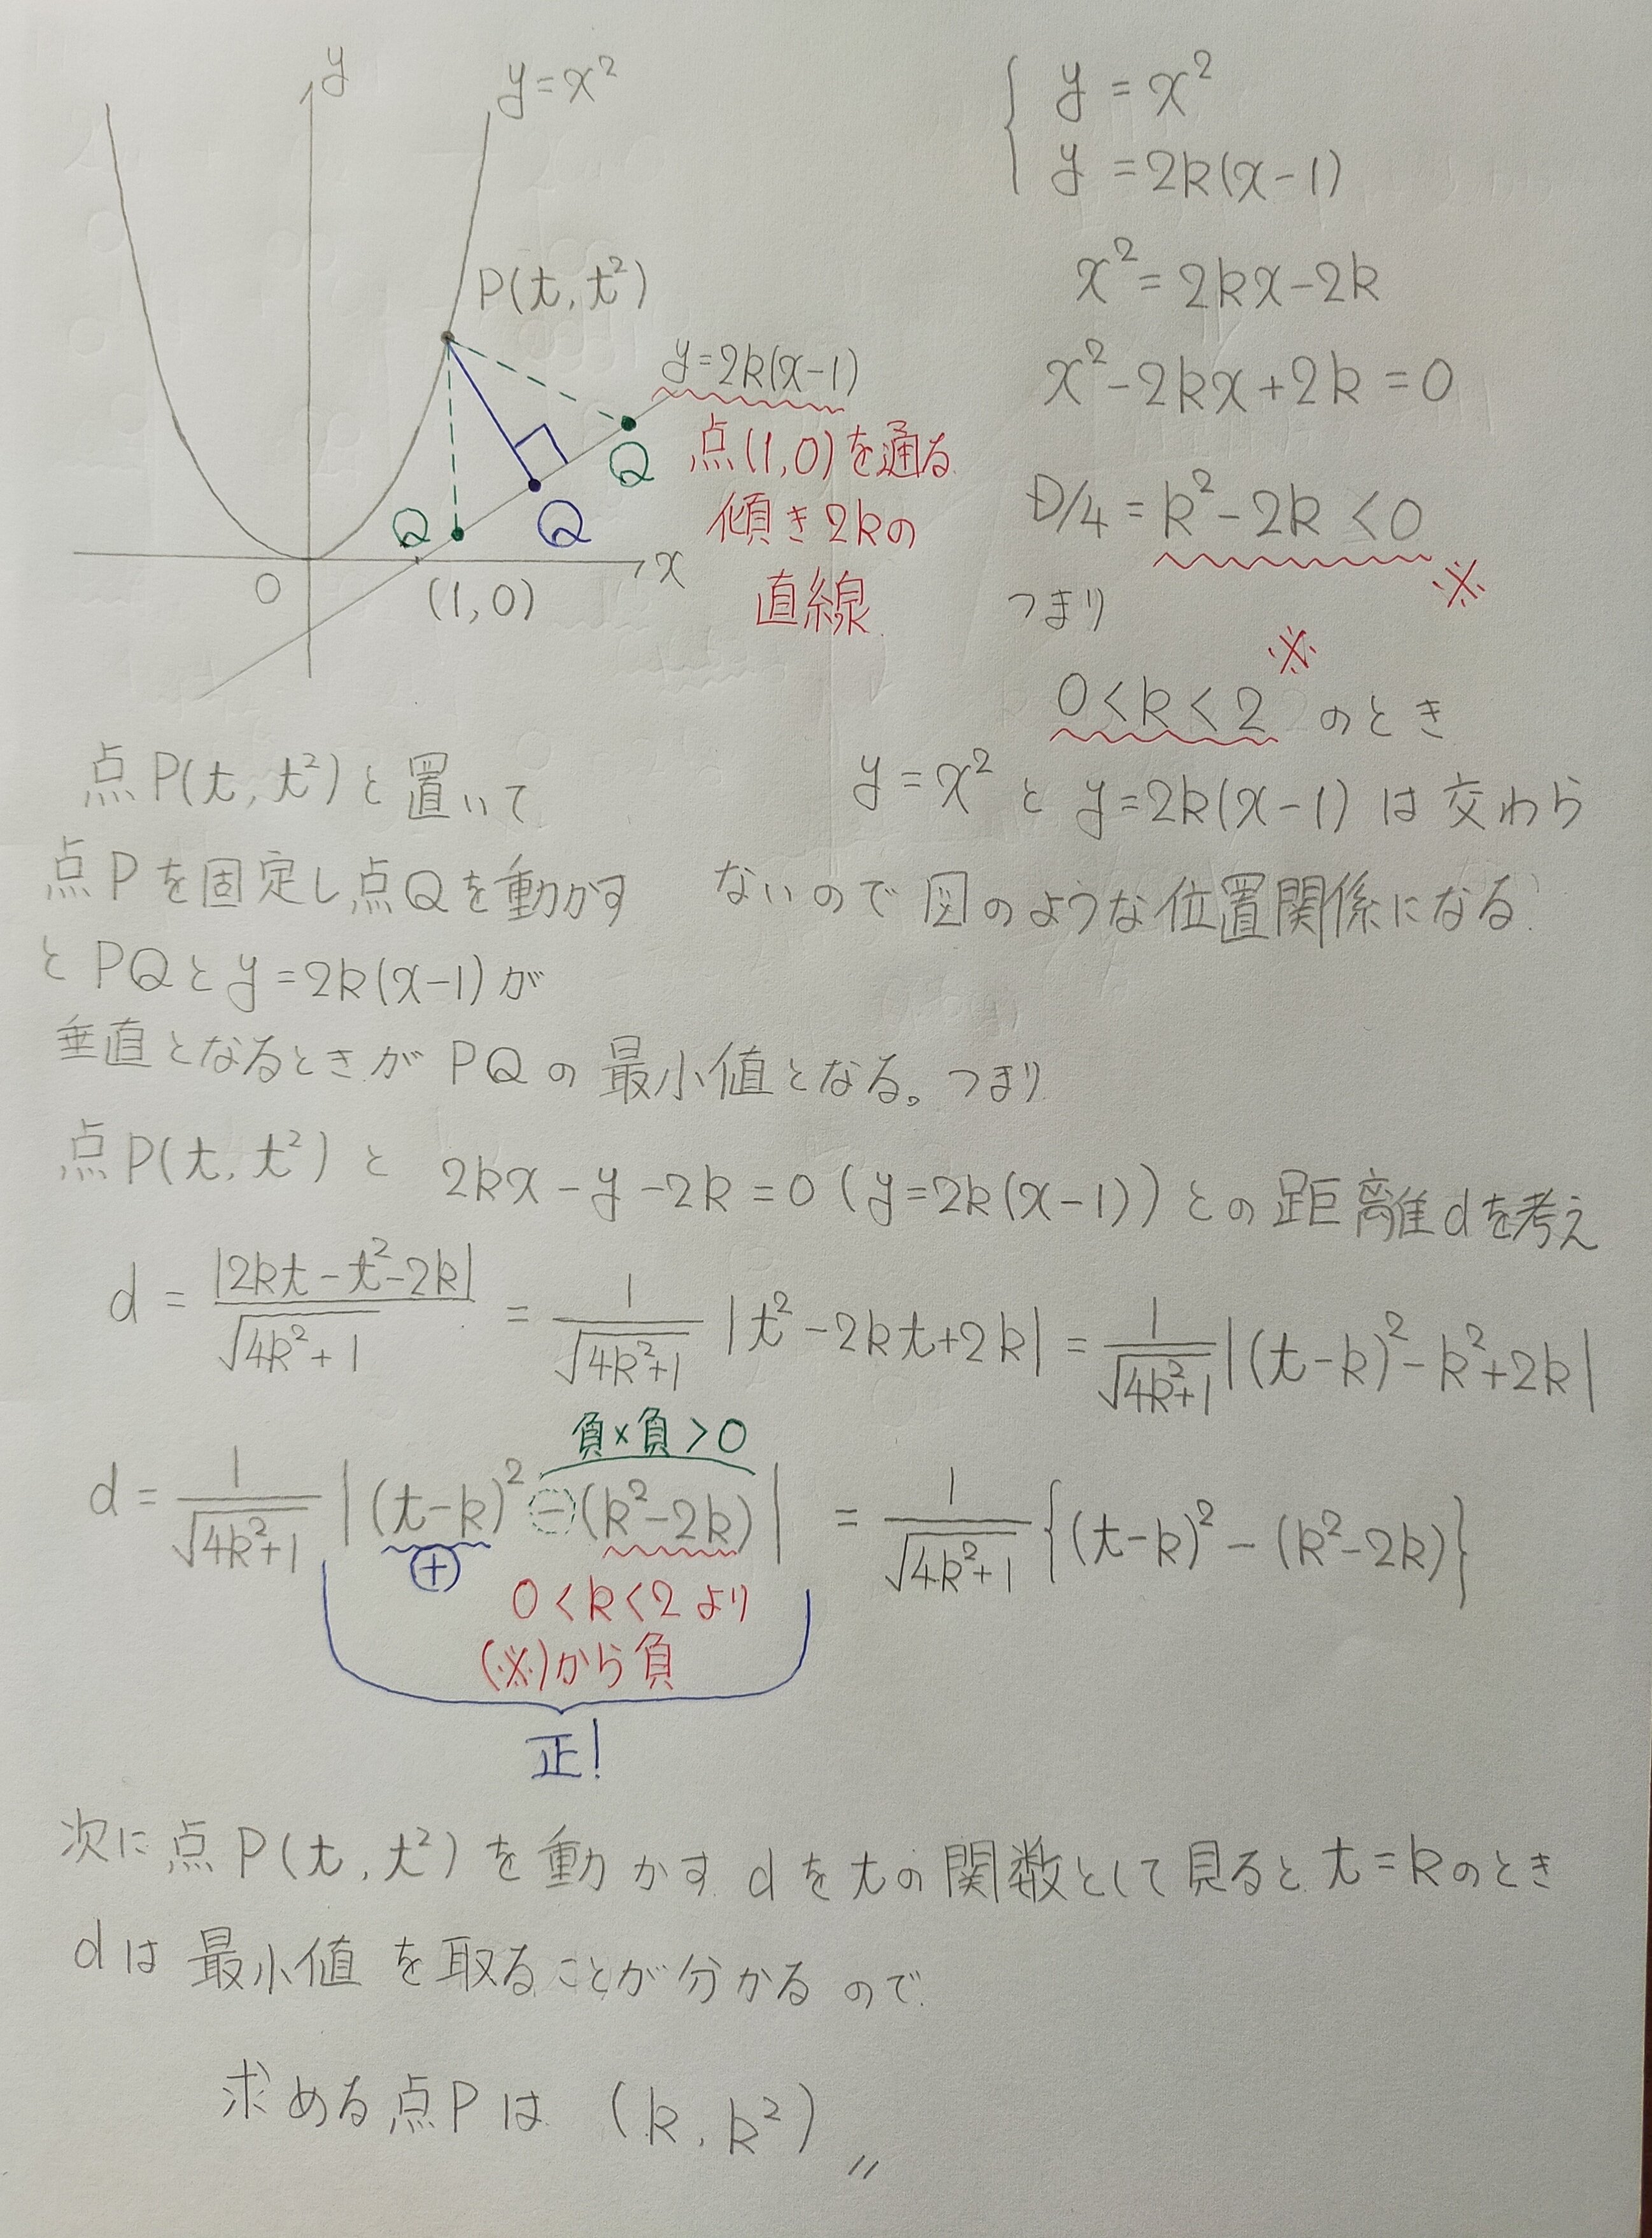 y
y=x²
P(t, t²)
y=2k(x-1)
点(1,0)を通る
傾き2kの
直線
Q
Q
Q
O
(1,0)
x
{ y = x²
y = 2k(x-1)
x² = 2kx-2k
x²-2kx+2k = 0
D/4 = k²-2k < 0
※
つまり
※
0<k<2 のとき
y=x² と y=2k(x-1) は 交わら
ないので 図のような位置関係になる
点P(t, t²)と置いて
点Pを固定し点Qを動かす
とPQとy=2k(x-1)が
垂直となるときがPQの最小値となる。つまり
点P(t, t²) と 2kx-y-2k=0 (y=2k(x-1)) との距離dを考え
d = |2kt-t²-2k|/√(4k²+1) = 1/√(4k²+1) |t²-2kt+2k| = 1/√(4k²+1) |(t-k)²-k²+2k|
負×負>0
d = 1/√(4k²+1) |(t-k)²-(k²-2k)| = 1/√(4k²+1) {(t-k)²-(k²-2k)}
⊕
0<k<2より
(※)から負
正!
次に点P(t, t²)を動かす dをtの関数として見ると t=kのとき
dは 最小値 を取ることが分かるので
求める点Pは (k, k²)〃